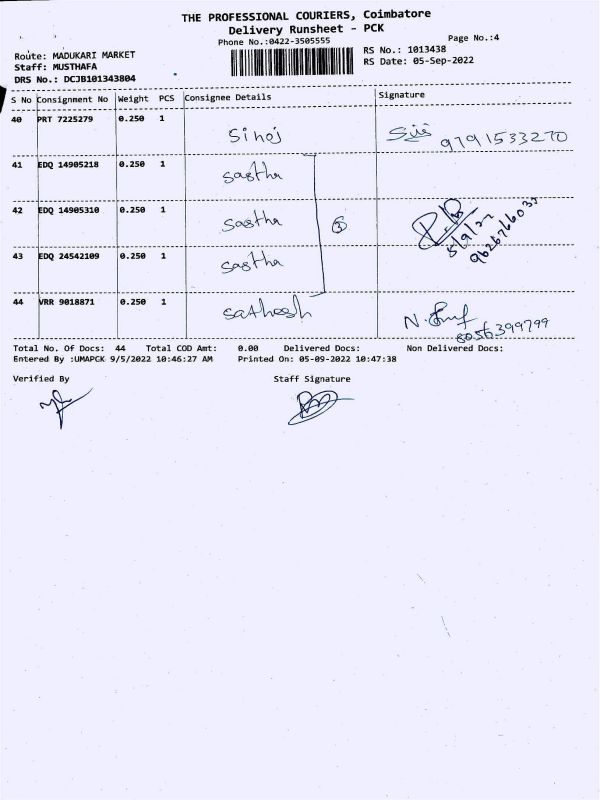 THE PROFESSIONAL COURIERS, Coimbatore
Delivery Runsheet - PCK
Phone No.:0422-3505555
Page No.:4
Route: MADUKARI MARKET
RS No.: 1013438
Staff: MUSTHAFA
RS Date: 05-Sep-2022
DRS No.: DCJB101343804
S No Consignment No Weight PCS Consignee Details Signature
40 PRT 7225279 0.250 1 Sinoj 9791533270
41 EDQ 14905218 0.250 1 sastha
42 EDQ 14905310 0.250 1 sastha 3 5/9/22
43 EDQ 24542109 0.250 1 sastha
44 VRR 9018871 0.250 1 sathessh 8056399799
Total No. Of Docs: 44 Total COD Amt: 0.00 Delivered Docs: Non Delivered Docs:
Entered By :UMAPCK 9/5/2022 10:46:27 AM Printed On: 05-09-2022 10:47:38
Verified By Staff Signature